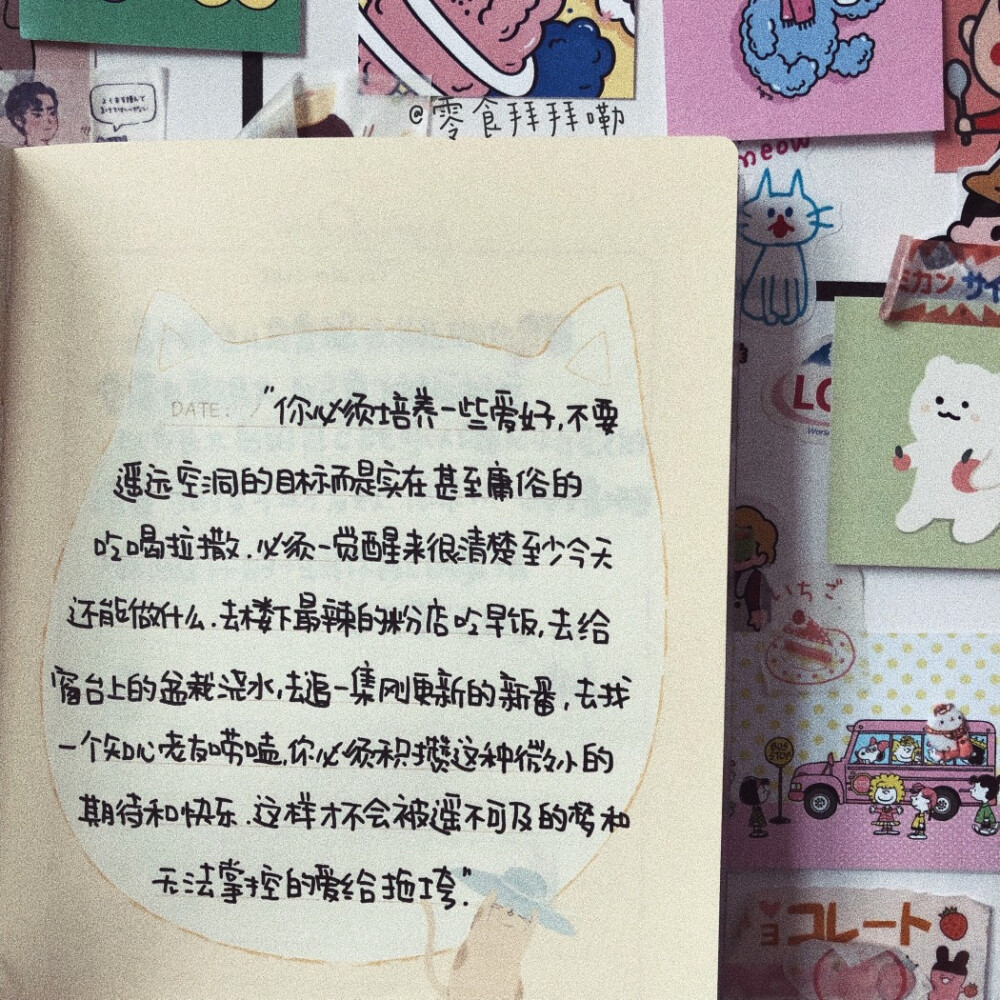 @零食拜拜嘞
meow
DATE: /
"你必须培养一些爱好,不要
遥远空洞的目标而是实在甚至庸俗的
吃喝拉撒.必须一觉醒来很清楚至少今天
还能做什么.去楼下最辣的粉店吃早饭,去给
窗台上的盆栽浇水,去追一集刚更新的新番,去找
一个知心老友唠嗑,你必须积攒这种微小的
期待和快乐.这样才不会被遥不可及的梦和
无法掌控的爱给拖垮".
ミカン サイ
LO
いちご
BUS STOP
ョコレート